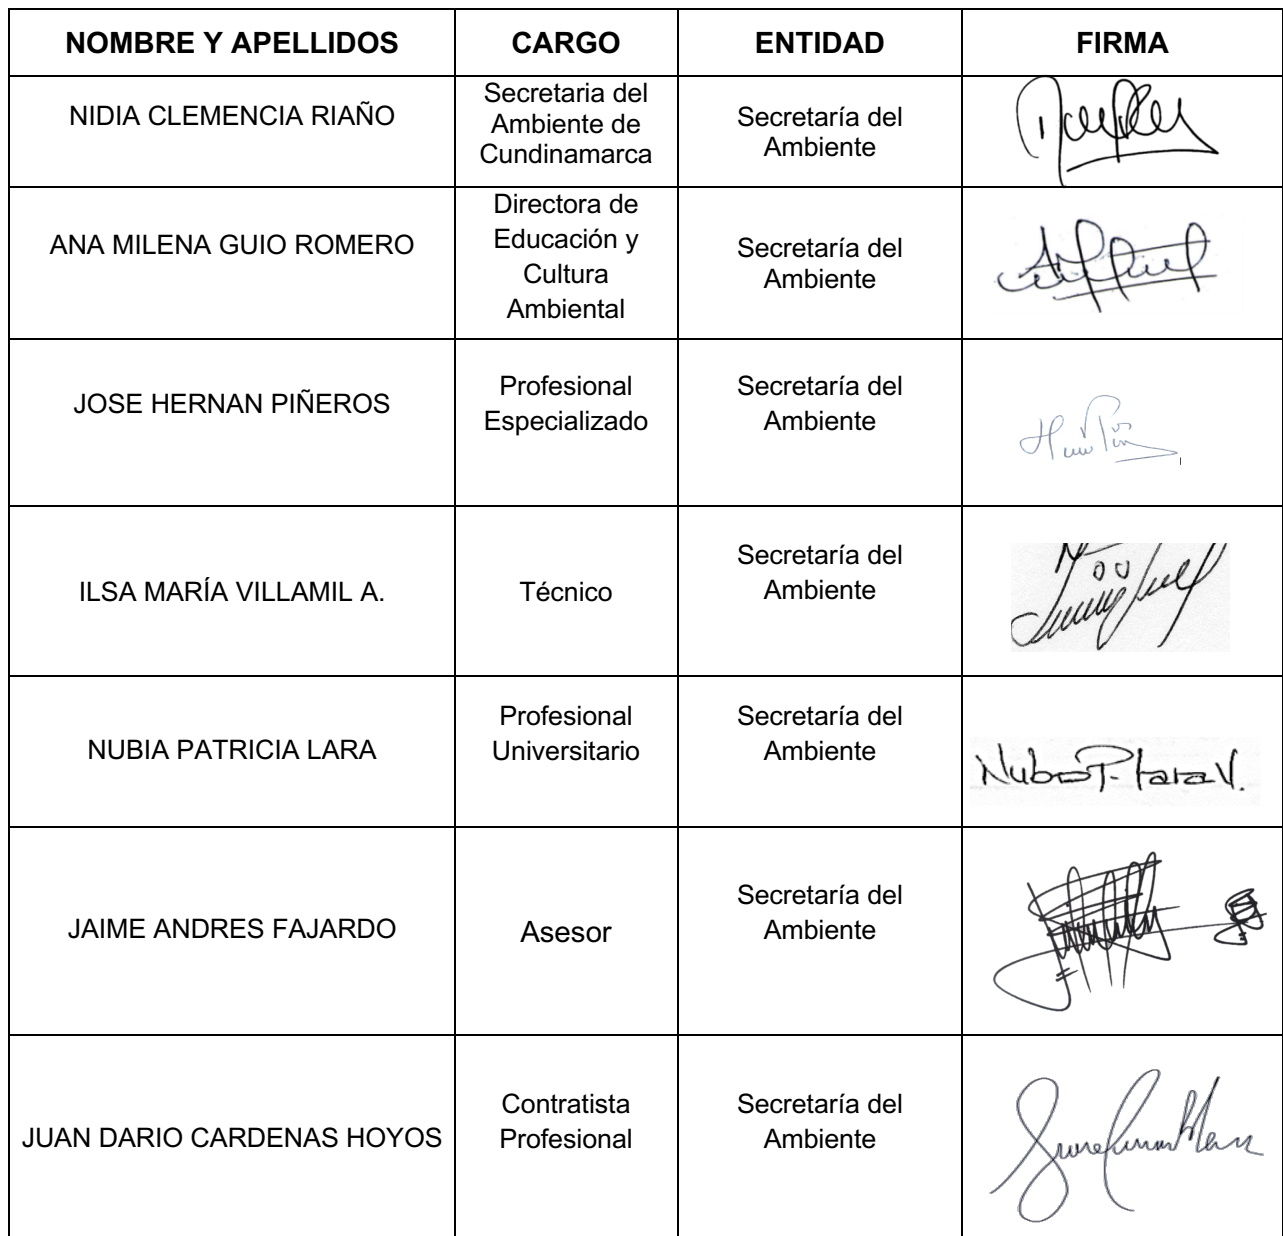 NOMBRE Y APELLIDOS CARGO ENTIDAD FIRMA
NIDIA CLEMENCIA RIAÑO
Secretaria del
Ambiente de
Cundinamarca
Secretaría del
Ambiente
ANA MILENA GUIO ROMERO
Directora de
Educación y
Cultura
Ambiental
Secretaría del
Ambiente
JOSE HERNAN PIÑEROS
Profesional
Especializado
Secretaría del
Ambiente
ILSA MARÍA VILLAMIL A.
Técnico
Secretaría del
Ambiente
NUBIA PATRICIA LARA
Profesional
Universitario
Secretaría del
Ambiente
Nubia P. Lara V.
JAIME ANDRES FAJARDO
Asesor
Secretaría del
Ambiente
JUAN DARIO CARDENAS HOYOS
Contratista
Profesional
Secretaría del
Ambiente